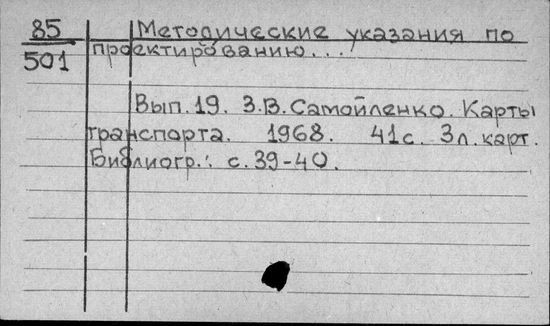 85
501
Методические указания по
проектированию...
Вып. 19. З.В. Самойленко. Карты
транспорта. 1968. 41с. 3л. карт.
Библиогр.: с. 39-40.